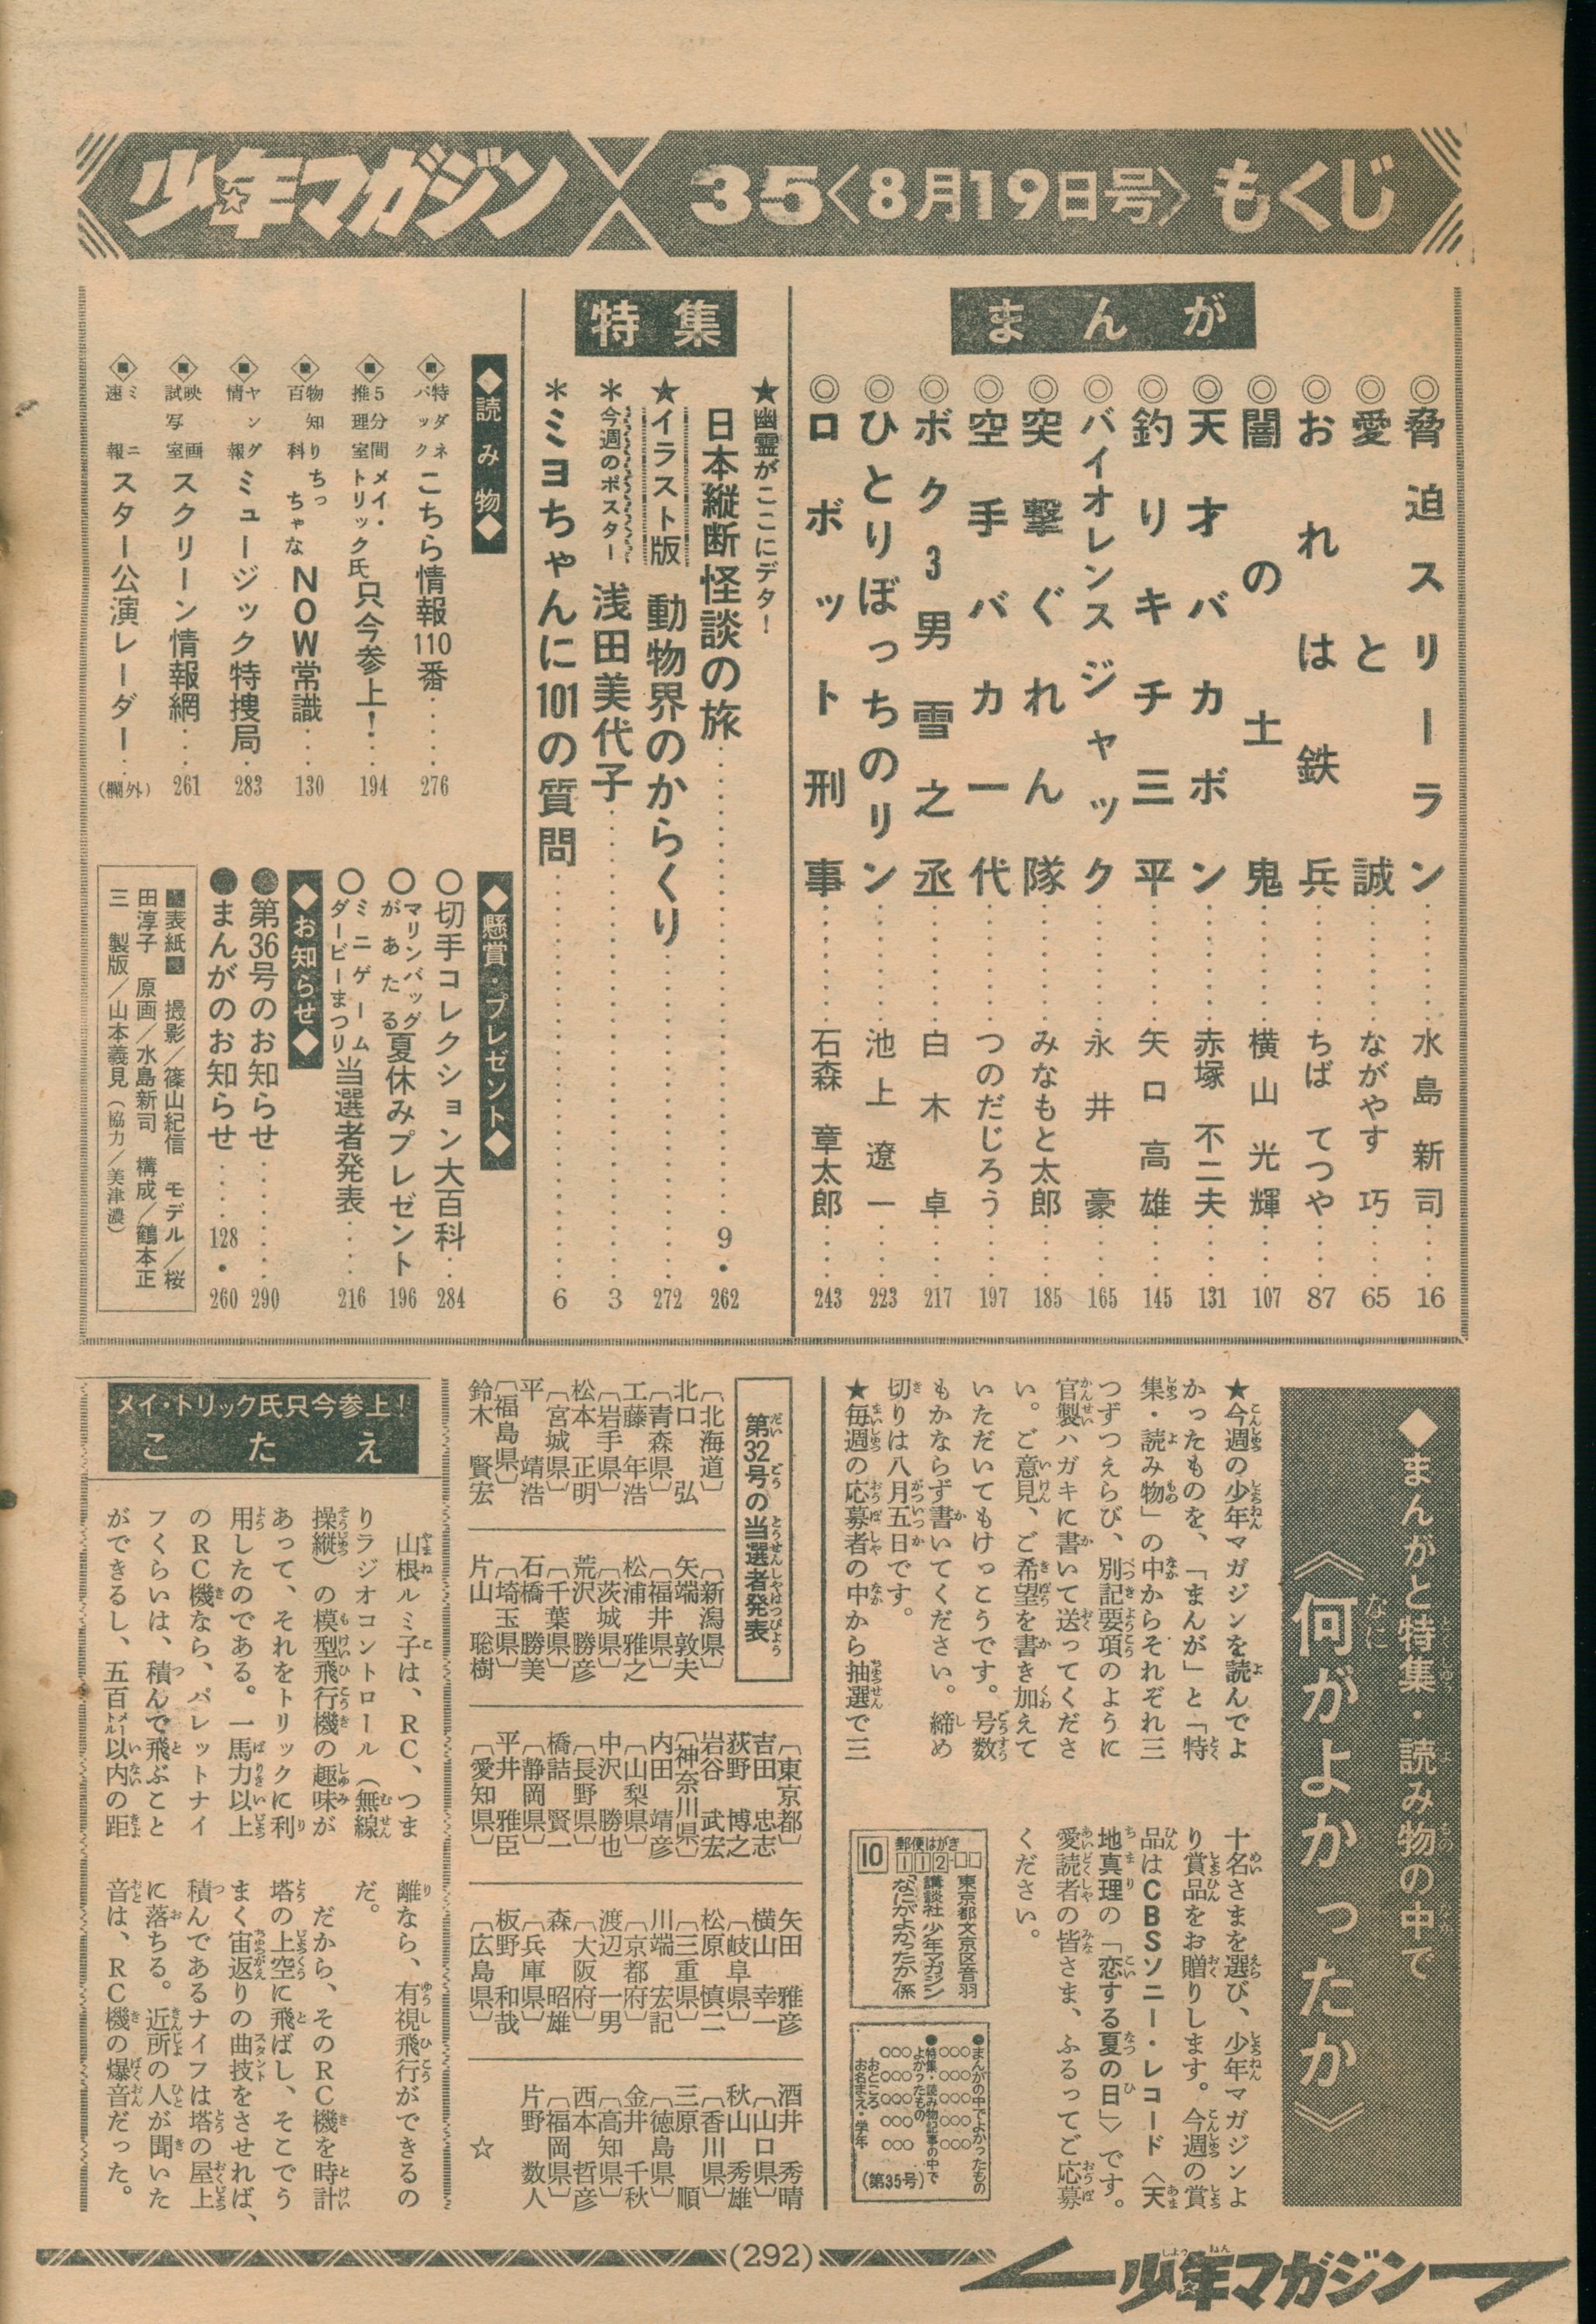 少年マガジン 35〈8月19日号〉もくじ
まんが
◎脅迫スリーラン……水島新司……16
◎愛と誠……ながやす巧……65
◎おれは鉄兵……ちばてつや……87
◎闇の土鬼……横山光輝……107
◎天才バカボン……赤塚不二夫……131
◎釣りキチ三平……矢口高雄……145
◎バイオレンスジャック……永井豪……165
◎突撃ぐれん隊……みなもと太郎……185
◎空手バカ一代……つのだじろう……197
◎ボク3男雪之丞……白木卓……217
◎ひとりぼっちのリン……池上遼一……223
◎ロボット刑事……石森章太郎……243
特集
★幽霊がここにデタ!
日本縦断怪談の旅……9・262
★イラスト版 動物界のからくり……272
＊今週のポスター 浅田美代子……3
＊ミヨちゃんに101の質問……6
◆読み物◆
特ダネパック こちら情報110番……276
5分間推理室 メイ・トリック氏只今参上!……194
物知り百科 ちっちゃなNOW常識……130
ヤング情報 ミュージック特捜局…283
映画試写室 スクリーン情報網…261
ミニ速報 スター公演レーダー…(欄外)
◆懸賞・プレゼント◆
○切手コレクション大百科…284
○マリンバッグがあたる 夏休みプレゼント 196
○ミニゲームダービーまつり 当選者発表……216
◆お知らせ◆
●第36号のお知らせ……290
●まんがのお知らせ……128・260
■表紙■ 撮影／篠山紀信 モデル／桜
田淳子 原画／水島新司 構成／鶴本正
三 製版／山本義見（協力／美津濃）
◆まんがと特集・読み物の中で
《何がよかったか》
★今週の少年マガジンを読んでよ
かったものを、「まんが」と「特
集・読み物」の中からそれぞれ三
つずつえらび、別記要項のように
官製ハガキに書いて送ってくださ
い。ご意見、ご希望を書き加えて
いただいてもけっこうです。号数
もかならず書いてください。締め
切りは八月五日です。
★毎週の応募者の中から抽選で三
十名さまを選び、少年マガジンよ
り賞品をお贈りします。今週の賞
品はCBSソニー・レコード〈天
地真理の「恋する夏の日」〉です。
愛読者の皆さま、ふるってご応募
ください。
郵便はがき
112-□□
10
東京都文京区音羽
講談社 少年マガジン
「なにがよかったか」係
●まんがの中でよかったもの
○○○ ○○○ ○○○ ○○○
●特集・読み物記事の中で
よかったもの
○○○ ○○○ ○○○ ○○○
おところ
お名まえ・学年
(第35号)
第32号の当選者発表
〔北海道〕
北口 弘
〔青森県〕
工藤 年浩
〔岩手県〕
松本 正明
〔宮城県〕
平 靖浩
〔福島県〕
鈴木 賢宏
〔新潟県〕
矢端 敦夫
〔福井県〕
松浦 雅之
〔茨城県〕
荒沢 勝彦
〔千葉県〕
石橋 勝美
〔埼玉県〕
片山 聡樹
〔東京都〕
吉田 忠志
荻野 博之
岩谷 武宏
〔神奈川県〕
内田 靖彦
〔山梨県〕
中沢 勝也
〔長野県〕
橋詰 賢一
〔静岡県〕
平井 雅臣
〔愛知県〕
矢田 雅彦
横山 幸一
〔岐阜県〕
松原 慎二
〔三重県〕
川端 宏記
〔京都府〕
渡辺 一男
〔大阪府〕
森 昭雄
〔兵庫県〕
板野 和哉
〔広島県〕
酒井 秀晴
〔山口県〕
秋山 秀雄
〔香川県〕
三原 順
〔徳島県〕
金井 千秋
〔高知県〕
西本 哲彦
〔福岡県〕
片野 数人
☆
メイ・トリック氏只今参上!
こたえ
山根ルミ子は、RC、つま
りラジオコントロール（無線
操縦）の模型飛行機の趣味が
あって、それをトリックに利
用したのである。一馬力以上
のRC機なら、パレットナイ
フくらいは、積んで飛ぶこと
ができるし、五百メートル以内の距
離なら、有視飛行ができるの
だ。
だから、そのRC機を時計
塔の上空に飛ばし、そこでう
まく宙返りの曲技をさせれば、
積んであるナイフは塔の屋上
に落ちる。近所の人が聞いた
音は、RC機の爆音だった。
(292)
少年マガジン